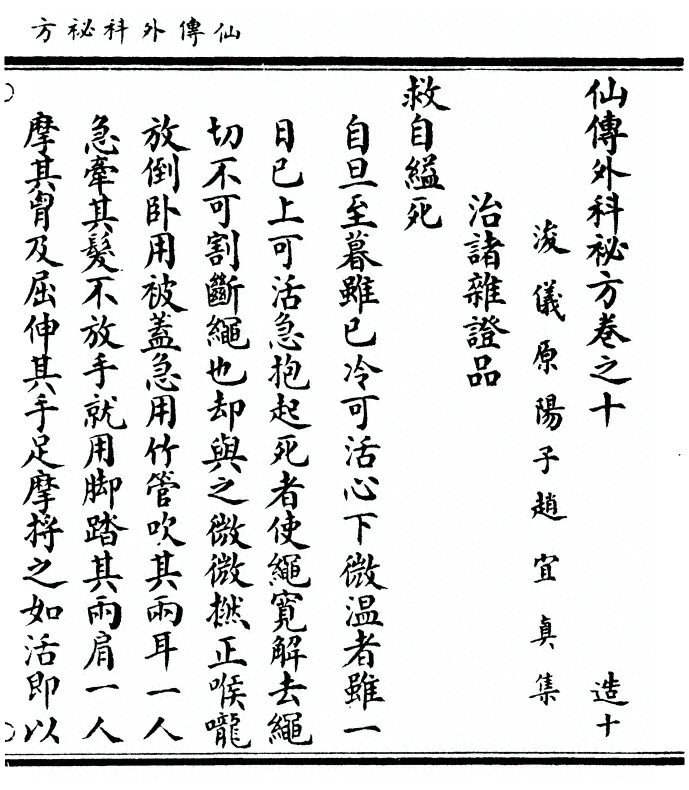 仙傳外科祕方
仙傳外科祕方卷之十 造十
浚儀原陽子趙宜真集
治諸雜證品
救自縊死
自旦至暮雖已冷可活心下微温者雖一
日已上可活急抱起死者使繩寬解去繩
切不可割斷繩也却與之微微撚正喉嚨
放倒卧用被蓋急用竹管吹其兩耳一人
急牽其髮不放手就用脚踏其兩肩一人
摩其胷及屈伸其手足摩捋之如活即以